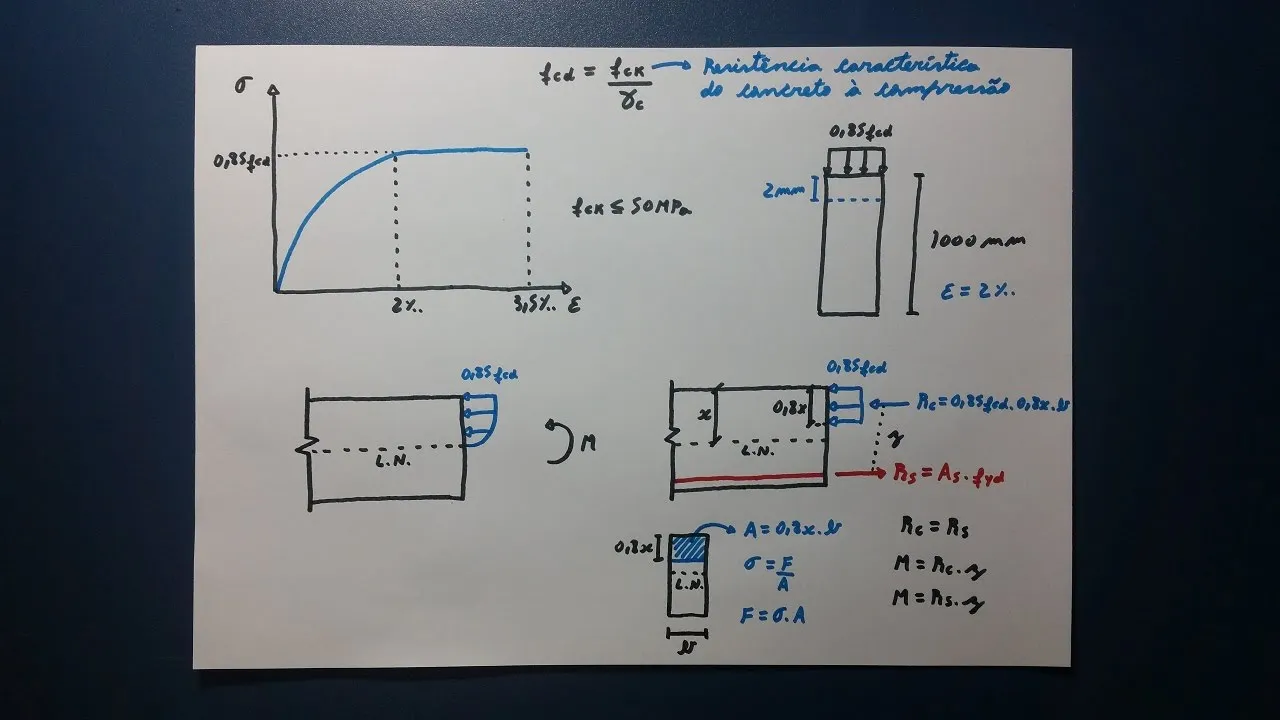 σ
fcd = fck/γc → Resistência característica
do concreto à compressão
0,85fcd
fck ≤ 50MPa
2‰
3,5‰
ε
0,85fcd
2mm
1000mm
ε = 2‰
0,85fcd
L.N.
M
0,85fcd
x
0,8x
L.N.
Rc = 0,85fcd.0,8x.b
z
Rs = As.fyd
0,8x
L.N.
b
A = 0,8x.b
σ = F/A
F = σ.A
Rc = Rs
M = Rc.z
M = Rs.z